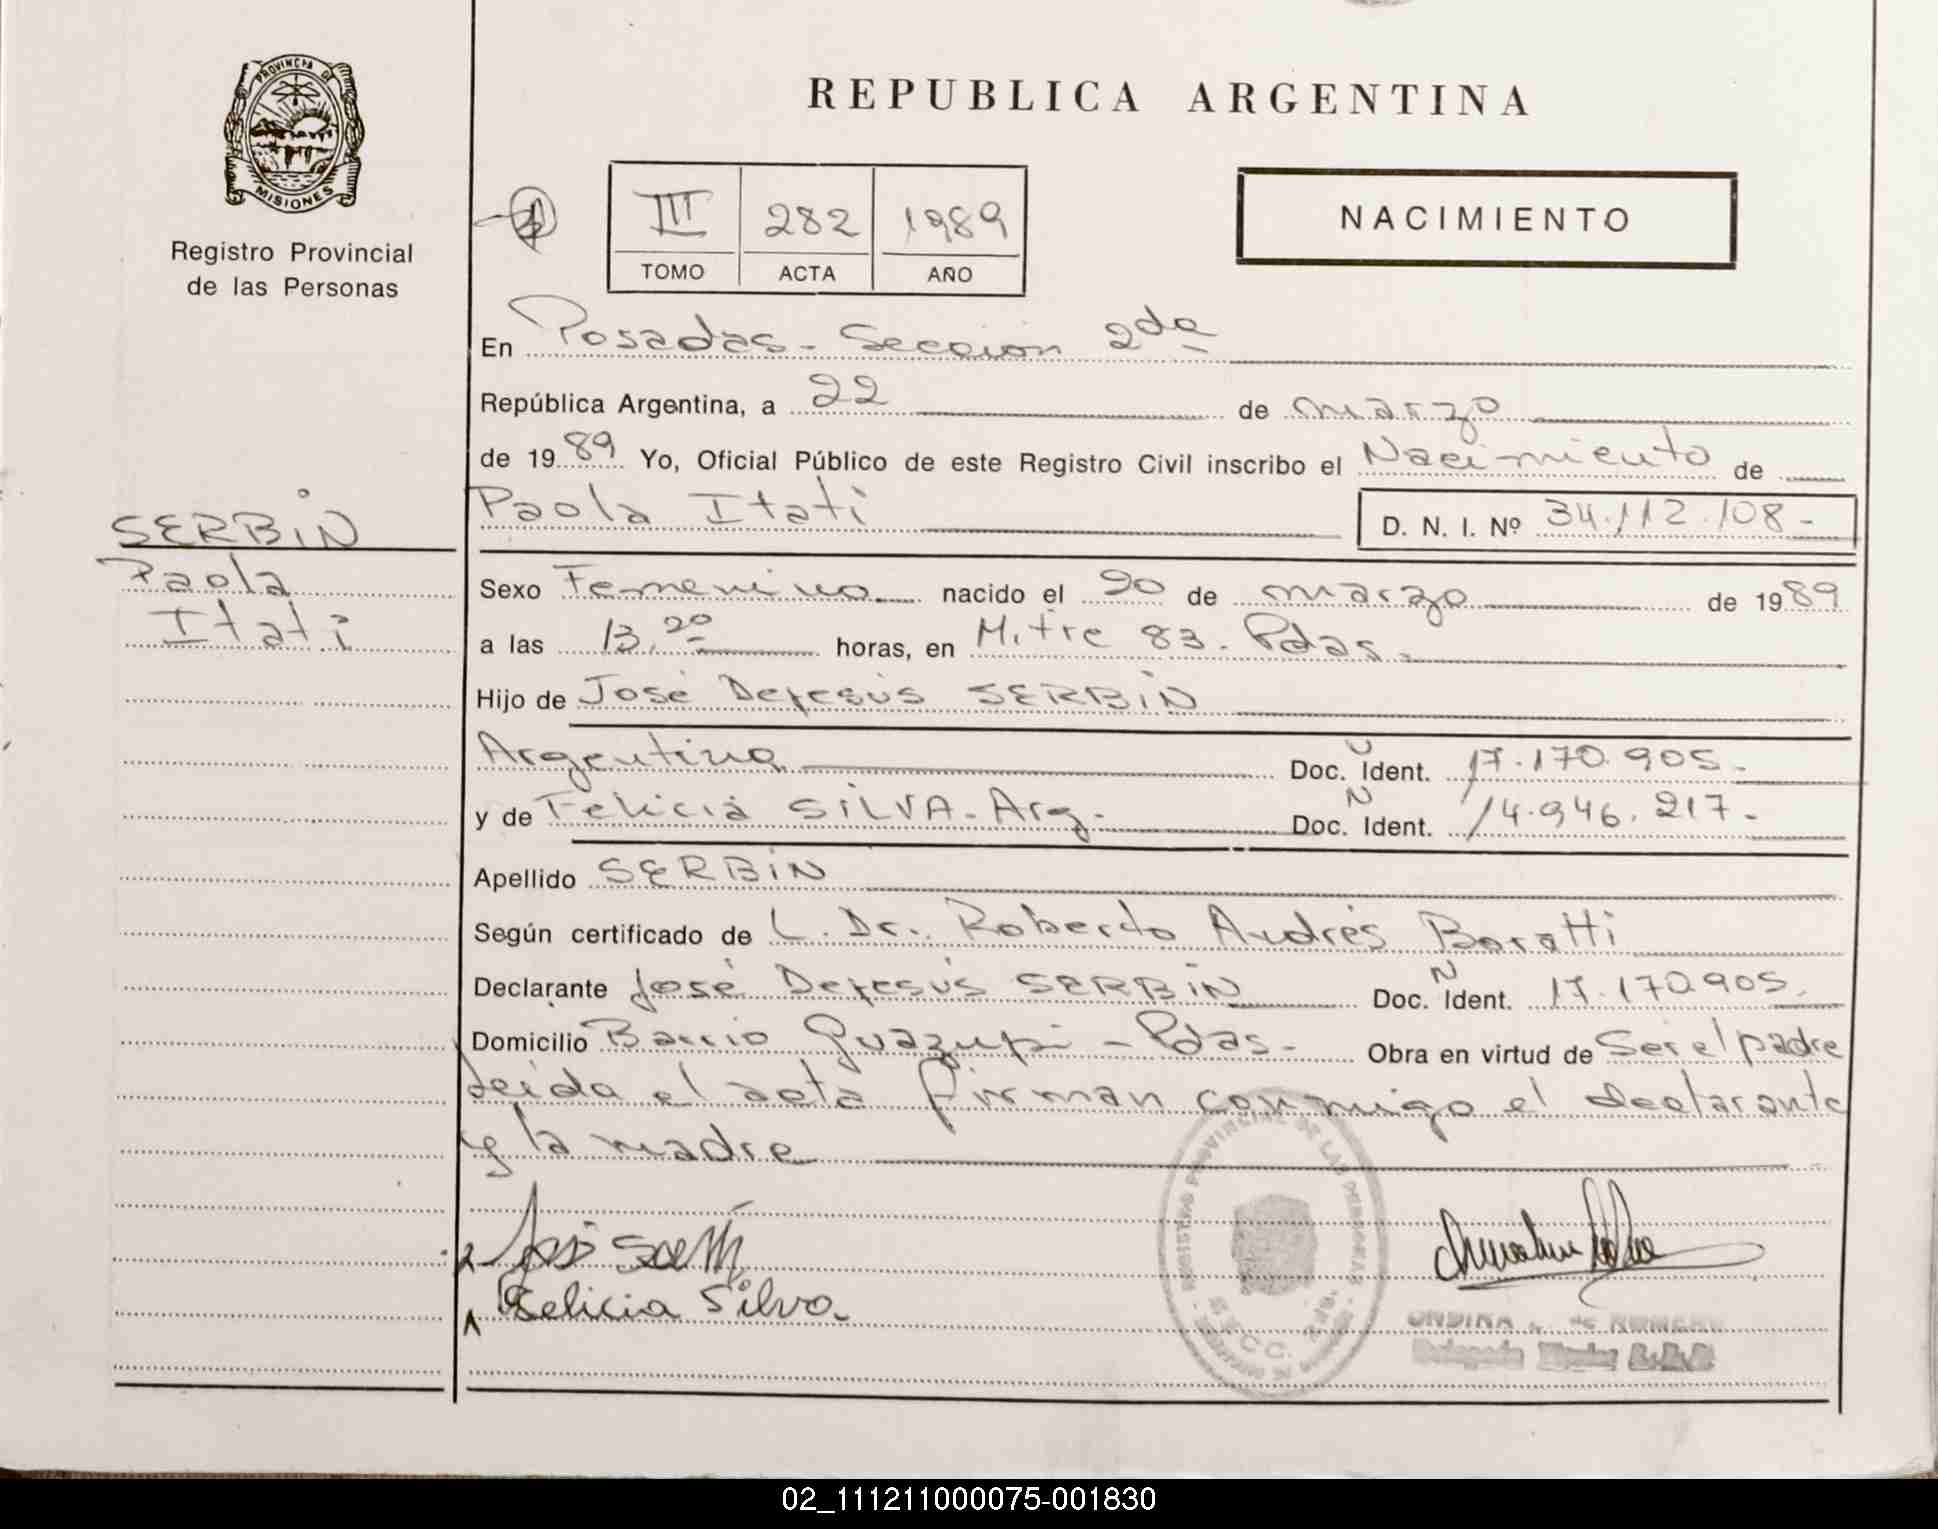 PROVINCIA DE
MISIONES
Registro Provincial
de las Personas
REPUBLICA ARGENTINA
III 282 1989
TOMO ACTA AÑO
NACIMIENTO
En Posadas - Sección 2da
República Argentina, a 22 de marzo
de 1989 Yo, Oficial Público de este Registro Civil inscribo el Nacimiento de
Paola Itati D. N. I. Nº 34.112.108-
SERBIN
Paola
Itati
Sexo Femenino nacido el 20 de marzo de 1989
a las 13,20 horas, en Mitre 83. Pdas.
Hijo de José Dejesús SERBIN
Argentino Doc. N Ident. 17.170.905.
y de Felicia SILVA - Arg. Doc. N Ident. 14.946.217-
Apellido SERBIN
Según certificado de L. Dr. Roberto Andrés Boratti
Declarante José Dejesús SERBIN Doc. N Ident. 17.170905.
Domicilio Barrio Guazupi - Pdas. Obra en virtud de Ser el padre
Leida el acta firman conmigo el declarante
y la madre
REGISTRO PROVINCIAL DE LAS PERSONAS
José
Felicia Silva
ONDINA de ROMERO
Delegada Titular
02_111211000075-001830